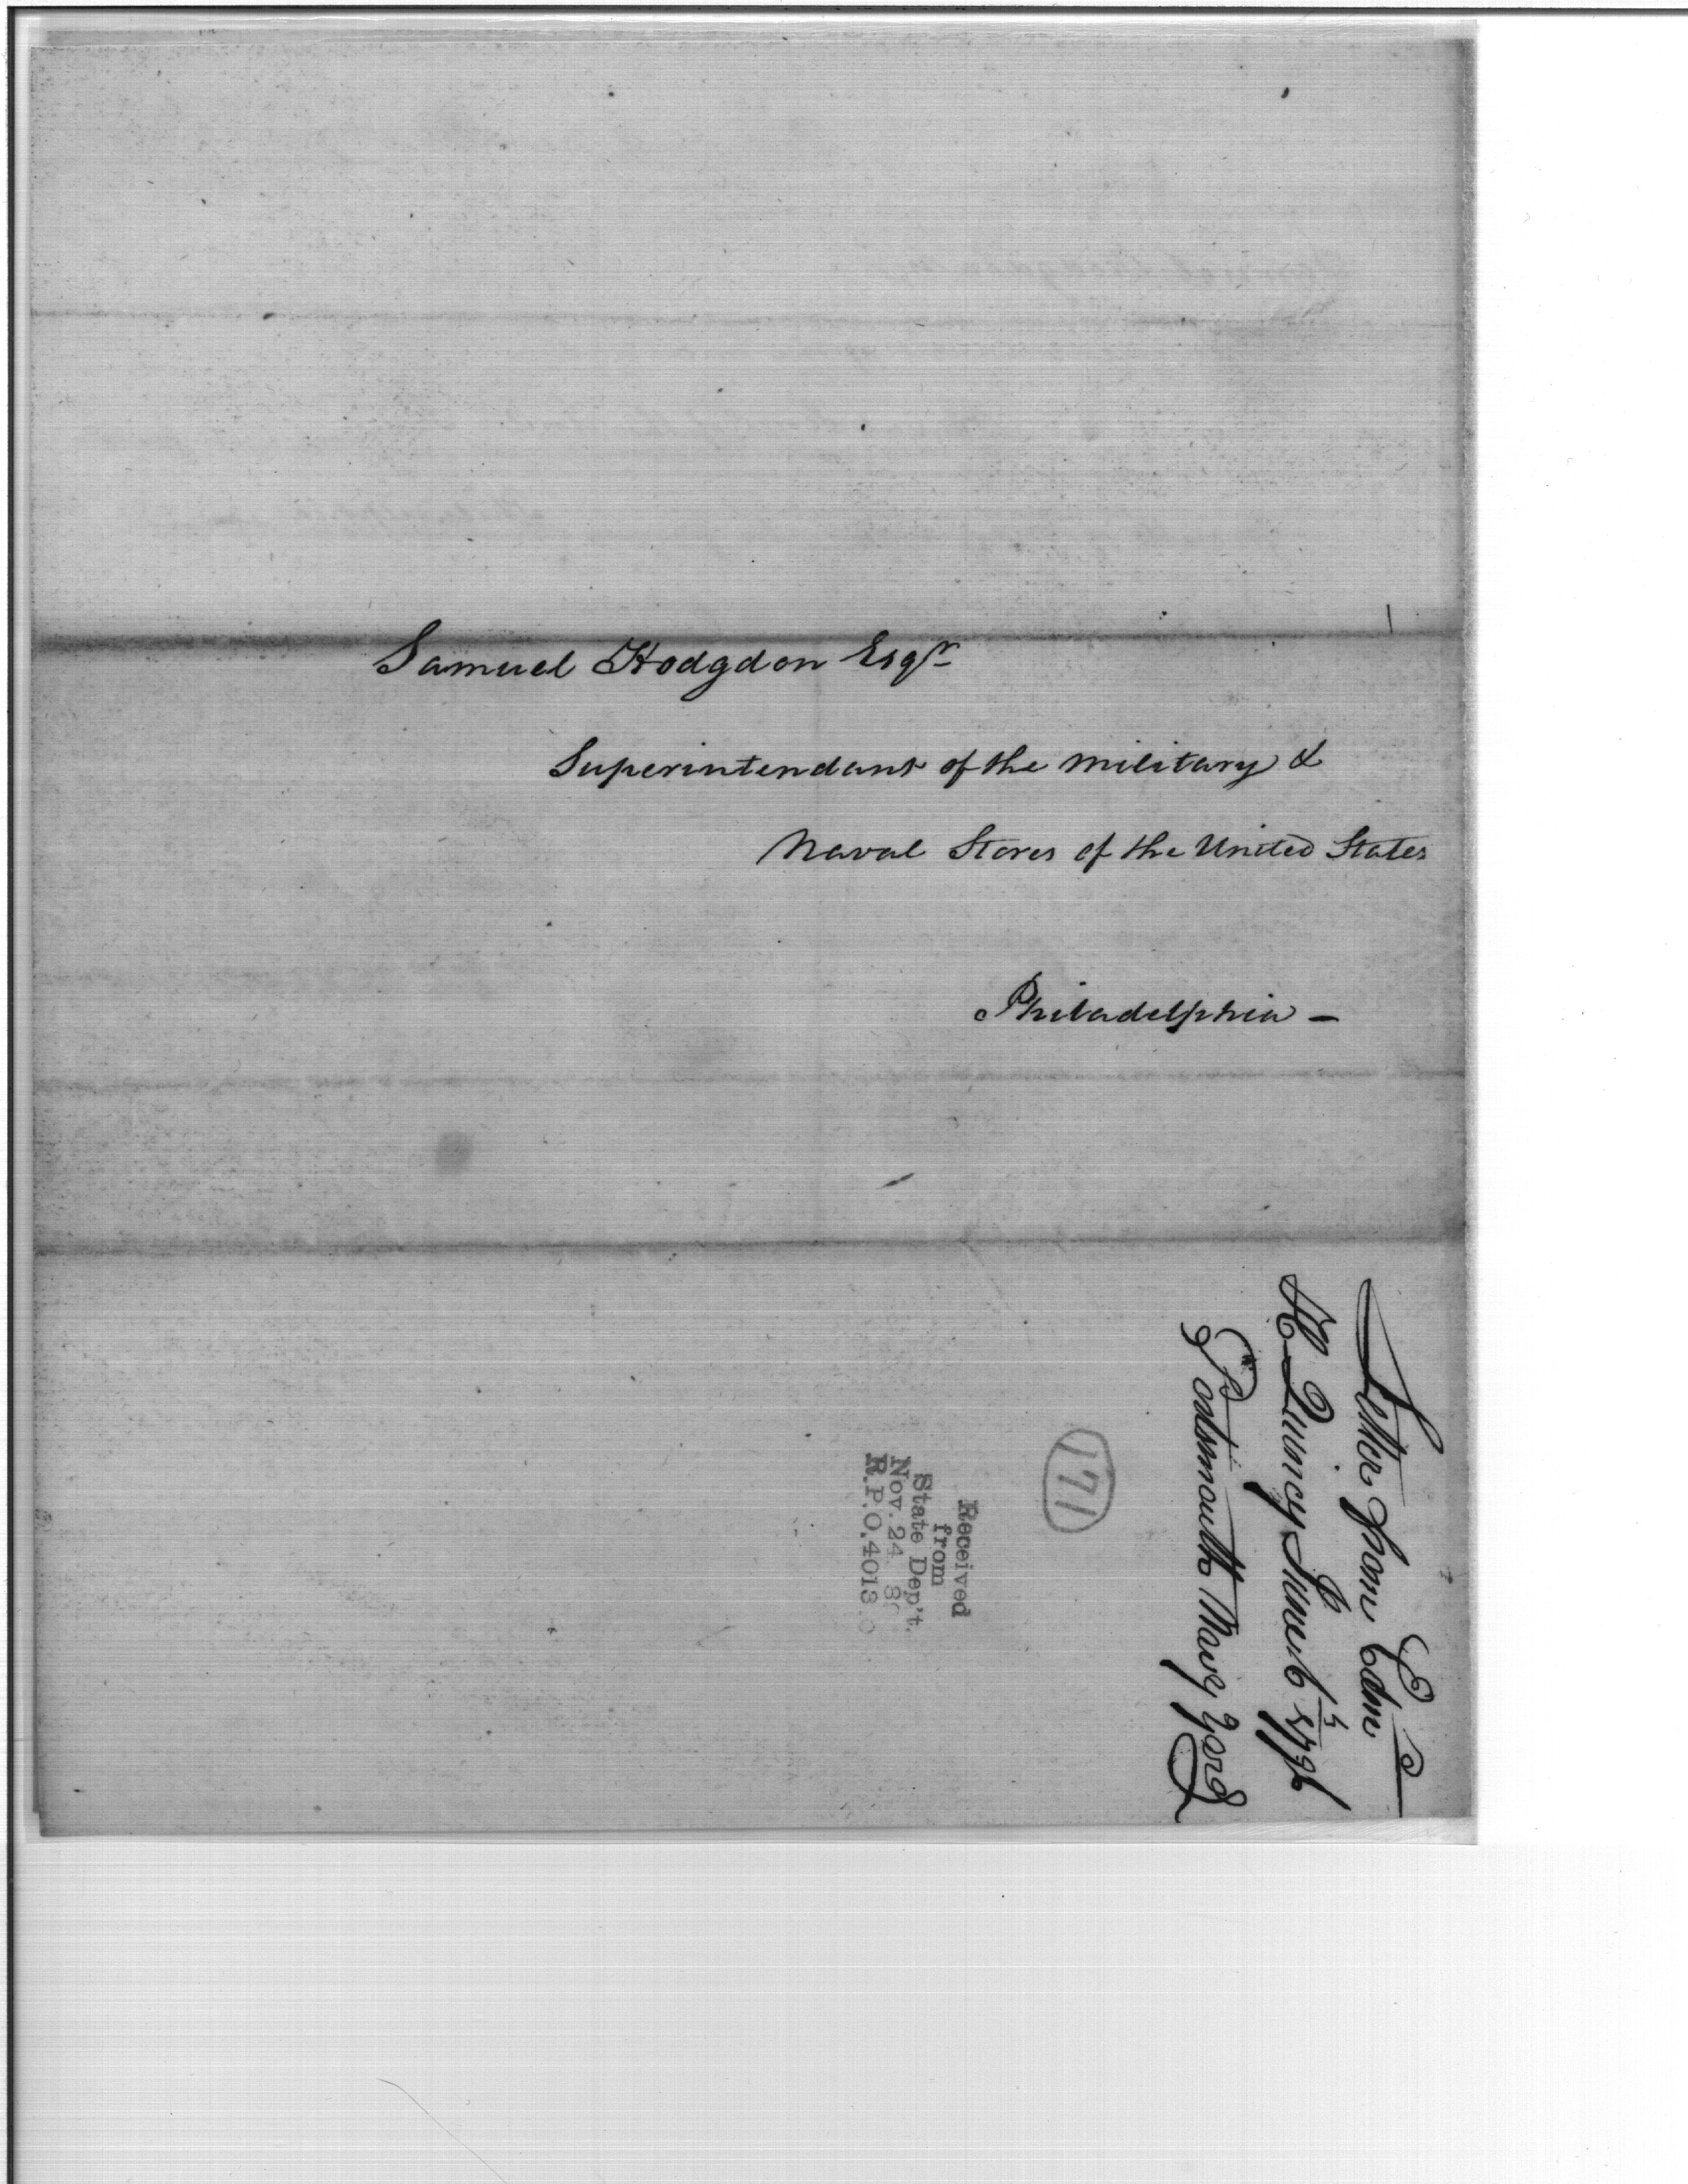 Samuel Hodgdon Esqr
Superintendant of the military &
Naval Stores of the United States
Philadelphia –
Letter from Edm
H Quincy June 6th 1796
Portsmouth Navy Yard
171
Received
from
State Dep't.
Nov. 24
R.P.O. 4013